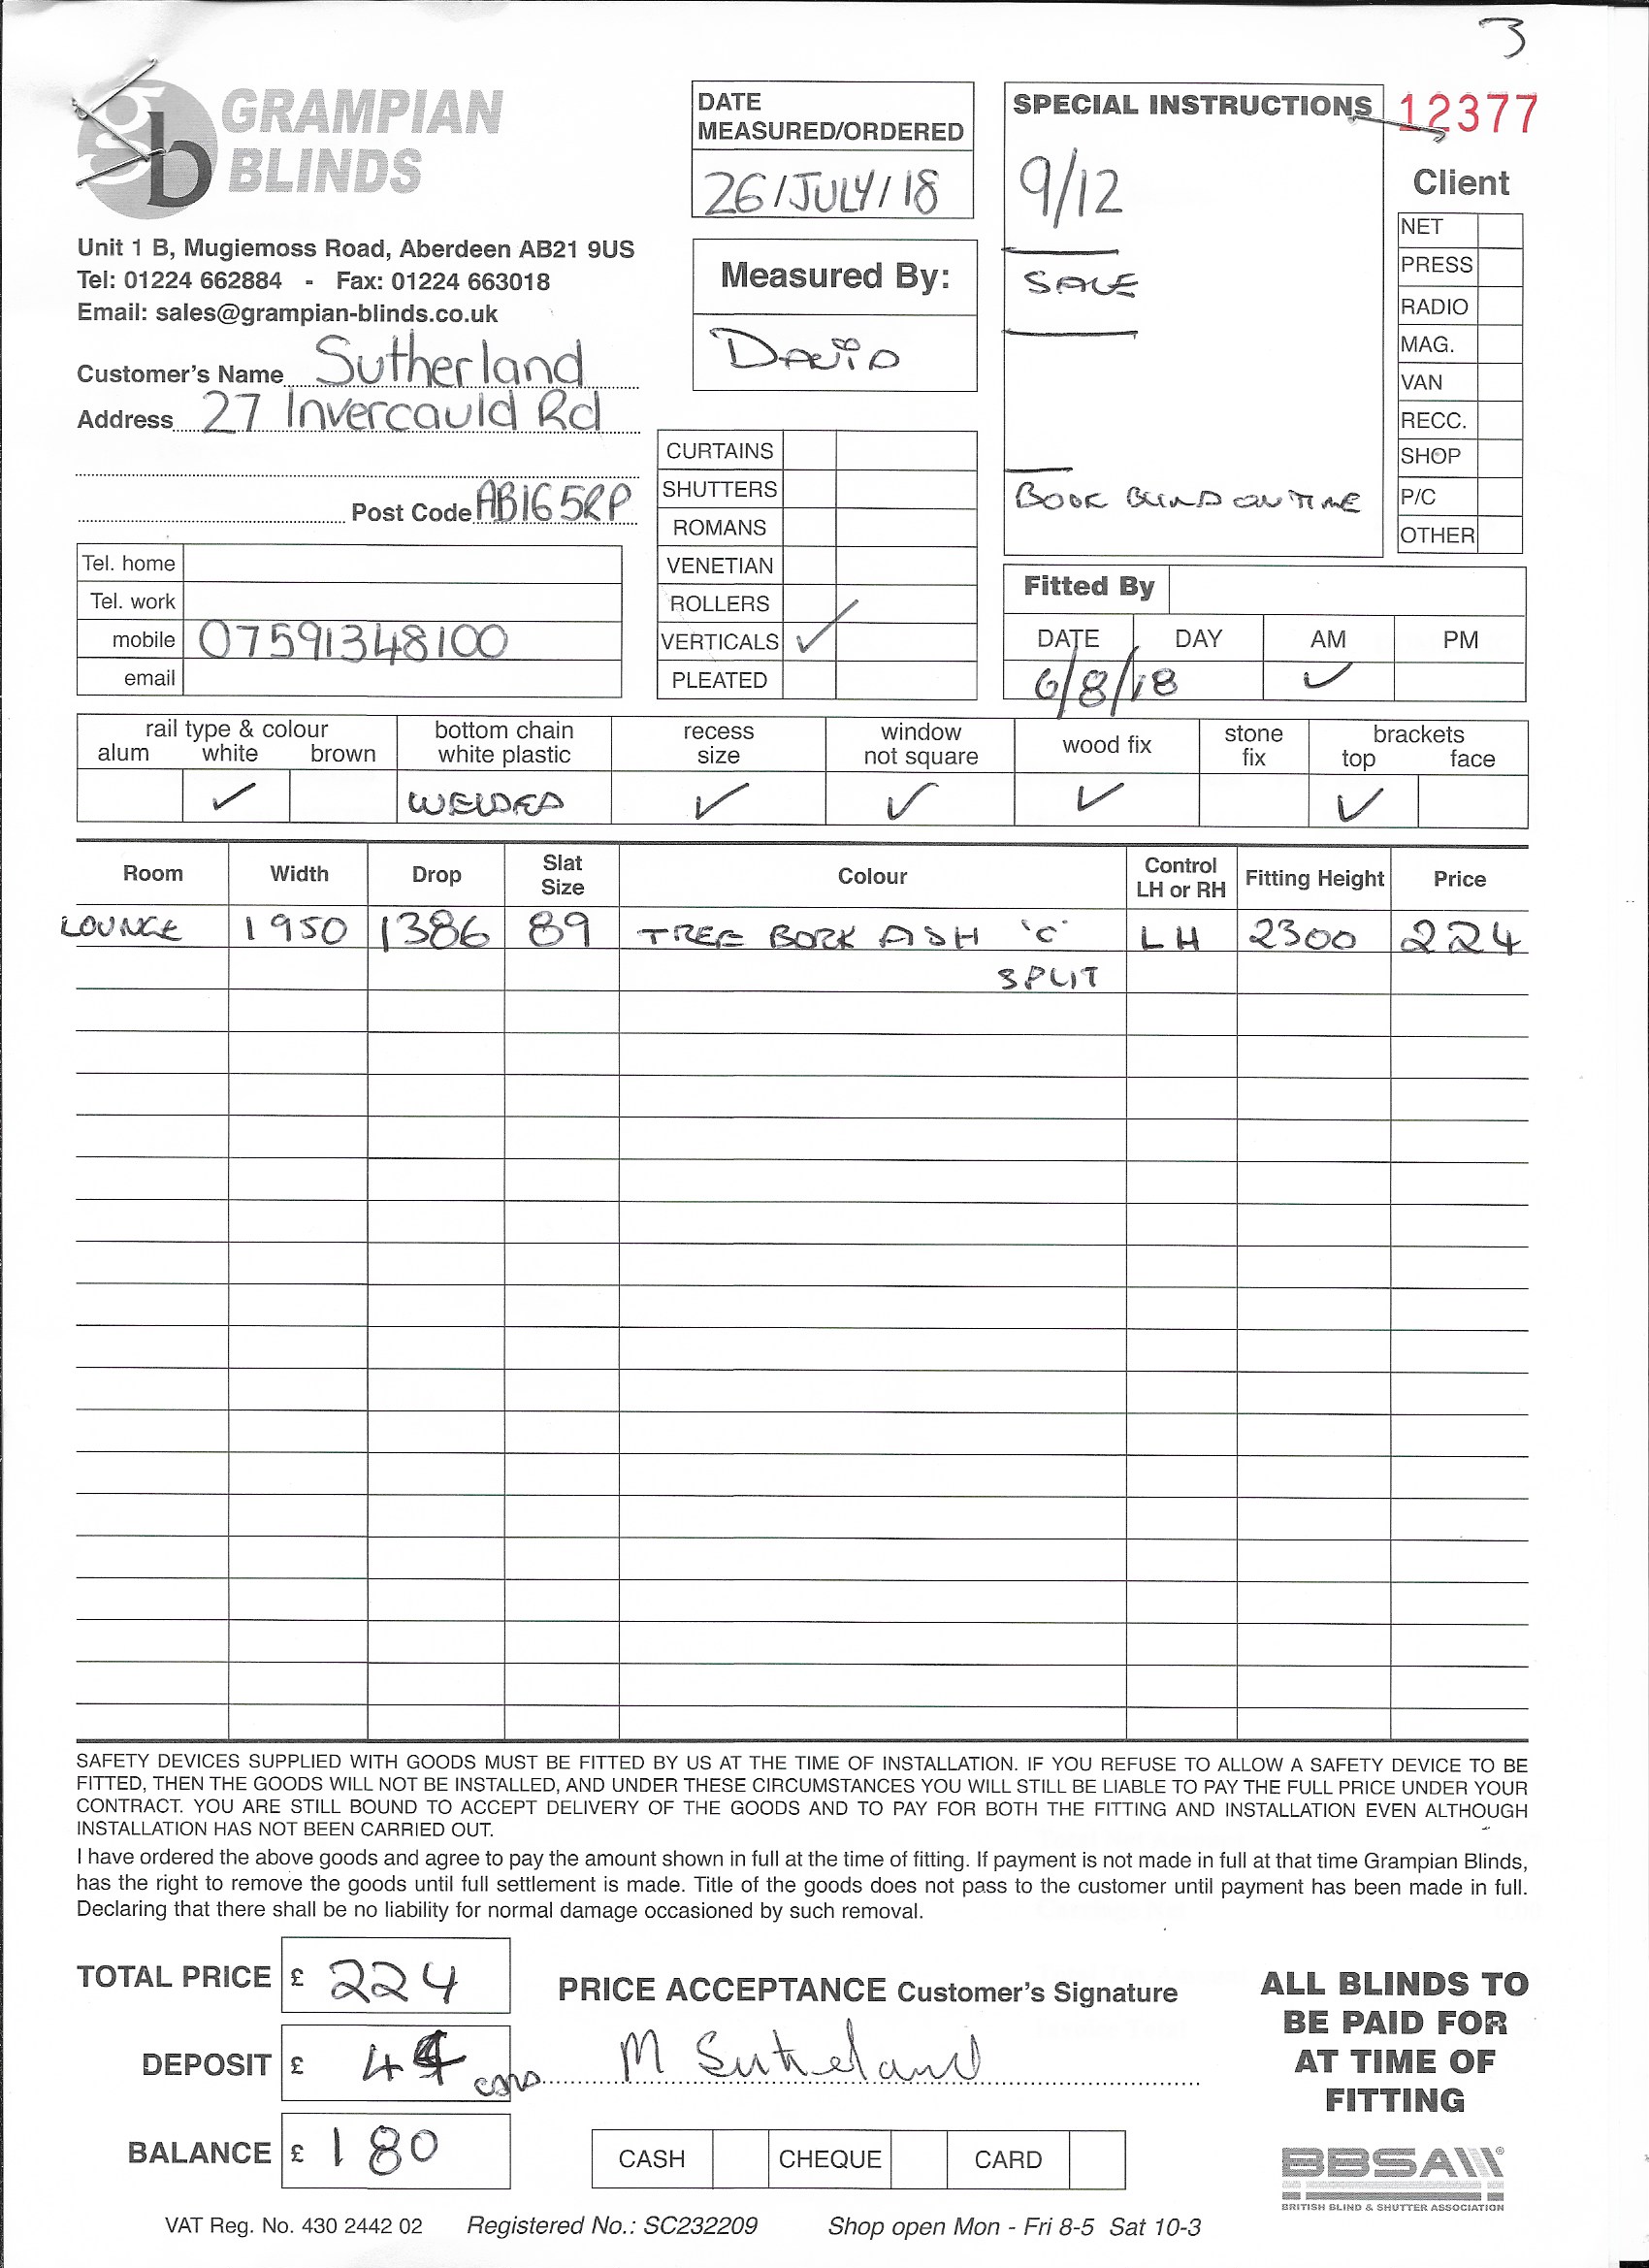 3
GRAMPIAN
BLINDS
Unit 1 B, Mugiemoss Road, Aberdeen AB21 9US
Tel: 01224 662884 - Fax: 01224 663018
Email: sales@grampian-blinds.co.uk
Customer's Name Sutherland
Address 27 Invercauld Rd
Post Code AB16 5RP
Tel. home
Tel. work
mobile 07591348100
email
DATE
MEASURED/ORDERED
26/JULY/18
Measured By:
DAViD
CURTAINS
SHUTTERS
ROMANS
VENETIAN
ROLLERS
VERTICALS ✓
PLEATED
SPECIAL INSTRUCTIONS
9/12
SALE
BOOK BLIND ON TIME
12377
Client
NET
PRESS
RADIO
MAG.
VAN
RECC.
SHOP
P/C
OTHER
Fitted By
DATE DAY AM PM
6/8/18 ✓
rail type & colour
alum white brown
bottom chain
white plastic
recess
size
window
not square
wood fix
stone
fix
brackets
top face
✓ WELDED ✓ ✓ ✓ ✓
Room Width Drop Slat Size Colour Control LH or RH Fitting Height Price
LOUNGE 1950 1386 89 TREE BORK ASH 'C' LH 2300 224
SPLIT
SAFETY DEVICES SUPPLIED WITH GOODS MUST BE FITTED BY US AT THE TIME OF INSTALLATION. IF YOU REFUSE TO ALLOW A SAFETY DEVICE TO BE
FITTED, THEN THE GOODS WILL NOT BE INSTALLED, AND UNDER THESE CIRCUMSTANCES YOU WILL STILL BE LIABLE TO PAY THE FULL PRICE UNDER YOUR
CONTRACT. YOU ARE STILL BOUND TO ACCEPT DELIVERY OF THE GOODS AND TO PAY FOR BOTH THE FITTING AND INSTALLATION EVEN ALTHOUGH
INSTALLATION HAS NOT BEEN CARRIED OUT.
I have ordered the above goods and agree to pay the amount shown in full at the time of fitting. If payment is not made in full at that time Grampian Blinds,
has the right to remove the goods until full settlement is made. Title of the goods does not pass to the customer until payment has been made in full.
Declaring that there shall be no liability for normal damage occasioned by such removal.
TOTAL PRICE £ 224
DEPOSIT £ 44
BALANCE £ 180
PRICE ACCEPTANCE Customer's Signature
M Sutherland
CASH CHEQUE CARD
ALL BLINDS TO
BE PAID FOR
AT TIME OF
FITTING
BBSA
BRITISH BLIND & SHUTTER ASSOCIATION
VAT Reg. No. 430 2442 02 Registered No.: SC232209 Shop open Mon - Fri 8-5 Sat 10-3